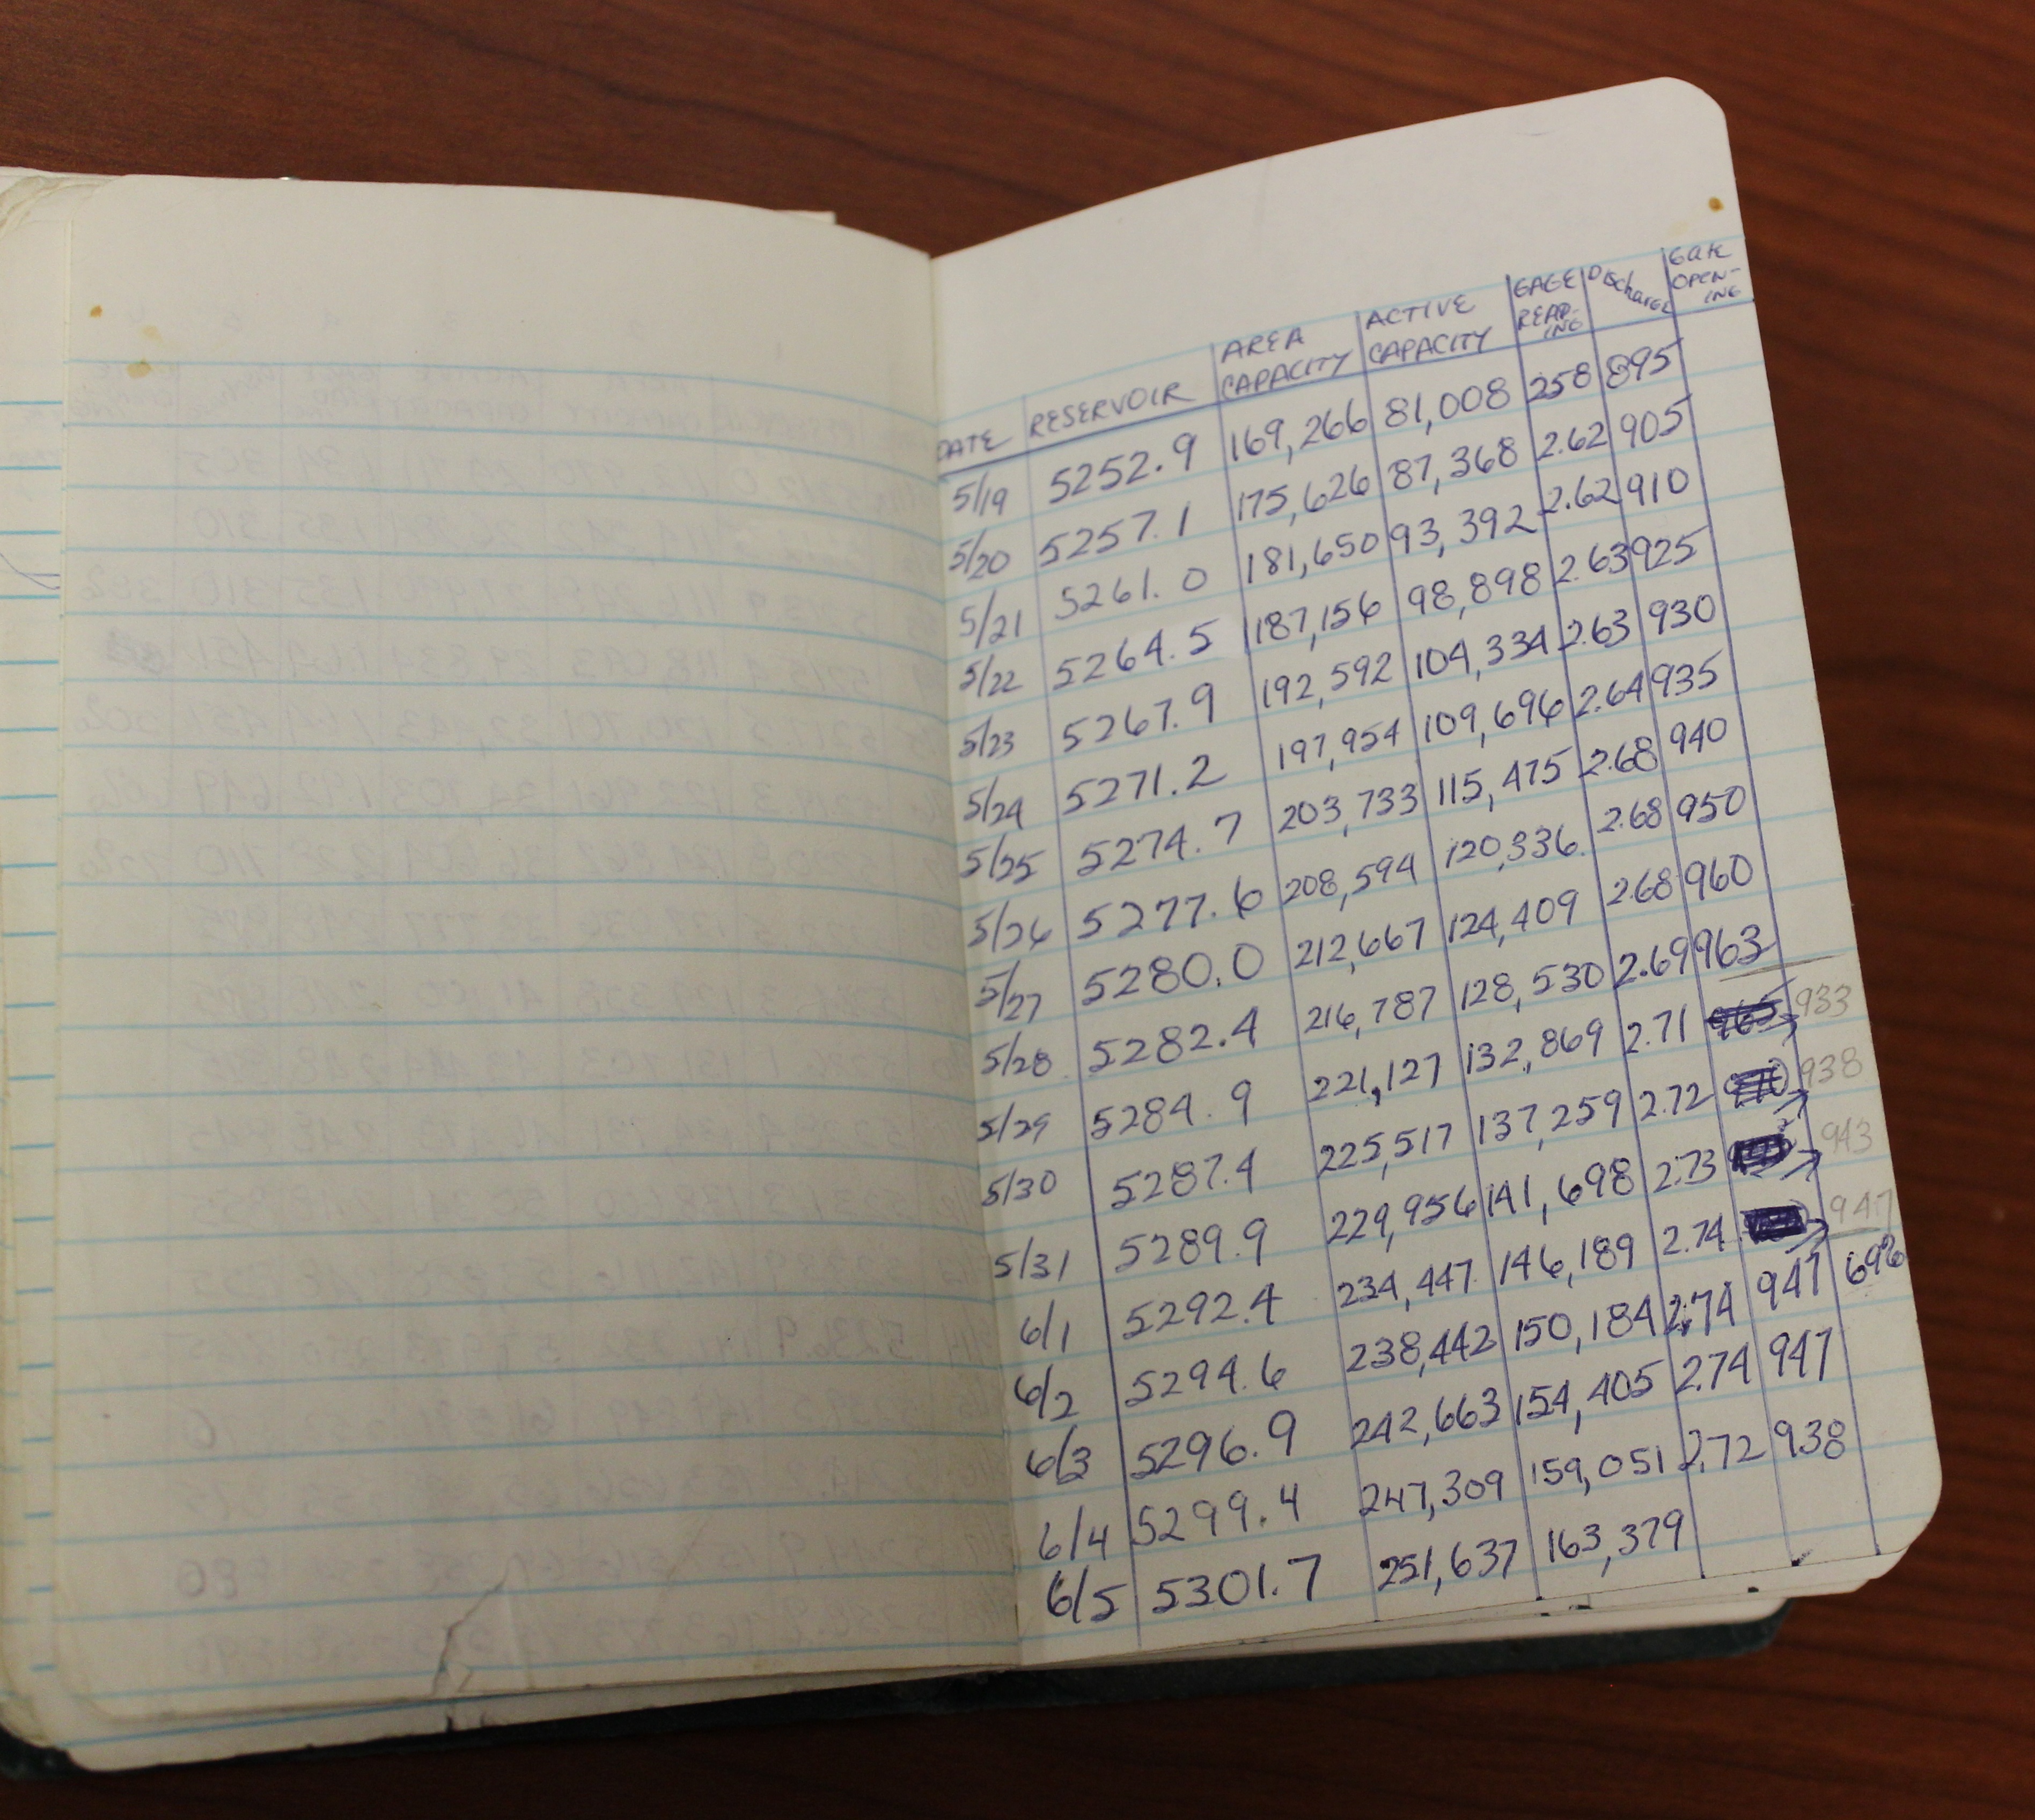 DATE RESERVOIR AREA CAPACITY ACTIVE CAPACITY GAGE READ-ING DIScharge Gate OPEN-ING
5/19 5252.9 169,266 81,008 258 895
5/20 5257.1 175,626 87,368 2.62 905
5/21 5261.0 181,650 93,392 2.62 910
5/22 5264.5 187,156 98,898 2.63 925
5/23 5267.9 192,592 104,334 2.63 930
5/24 5271.2 197,954 109,696 2.64 935
5/25 5274.7 203,733 115,475 2.68 940
5/26 5277.6 208,594 120,336 2.68 950
5/27 5280.0 212,667 124,409 2.68 960
5/28 5282.4 216,787 128,530 2.69 963
5/29 5284.9 221,127 132,869 2.71 965 933
5/30 5287.4 225,517 137,259 2.72 938
5/31 5289.9 229,956 141,698 2.73 943
6/1 5292.4 234,447 146,189 2.74 947
6/2 5294.6 238,442 150,184 2.74 947 69%
6/3 5296.9 242,663 154,405 2.74 947
6/4 5299.4 247,309 159,051 2.72 938
6/5 5301.7 251,637 163,379